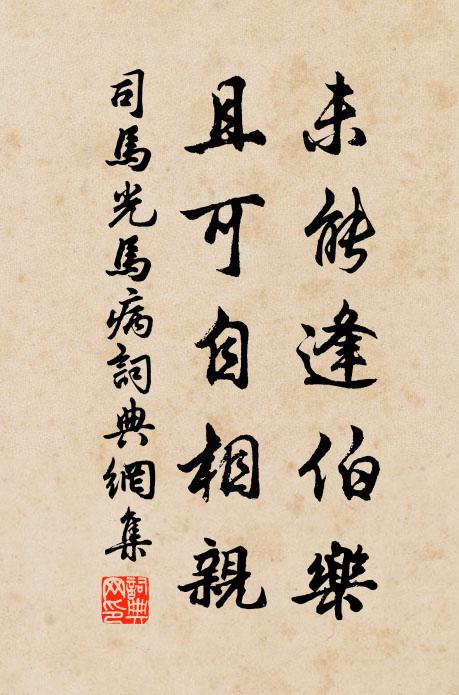 未能逢伯樂
且可自相親
司馬光馬病詞典網集
詞典網印